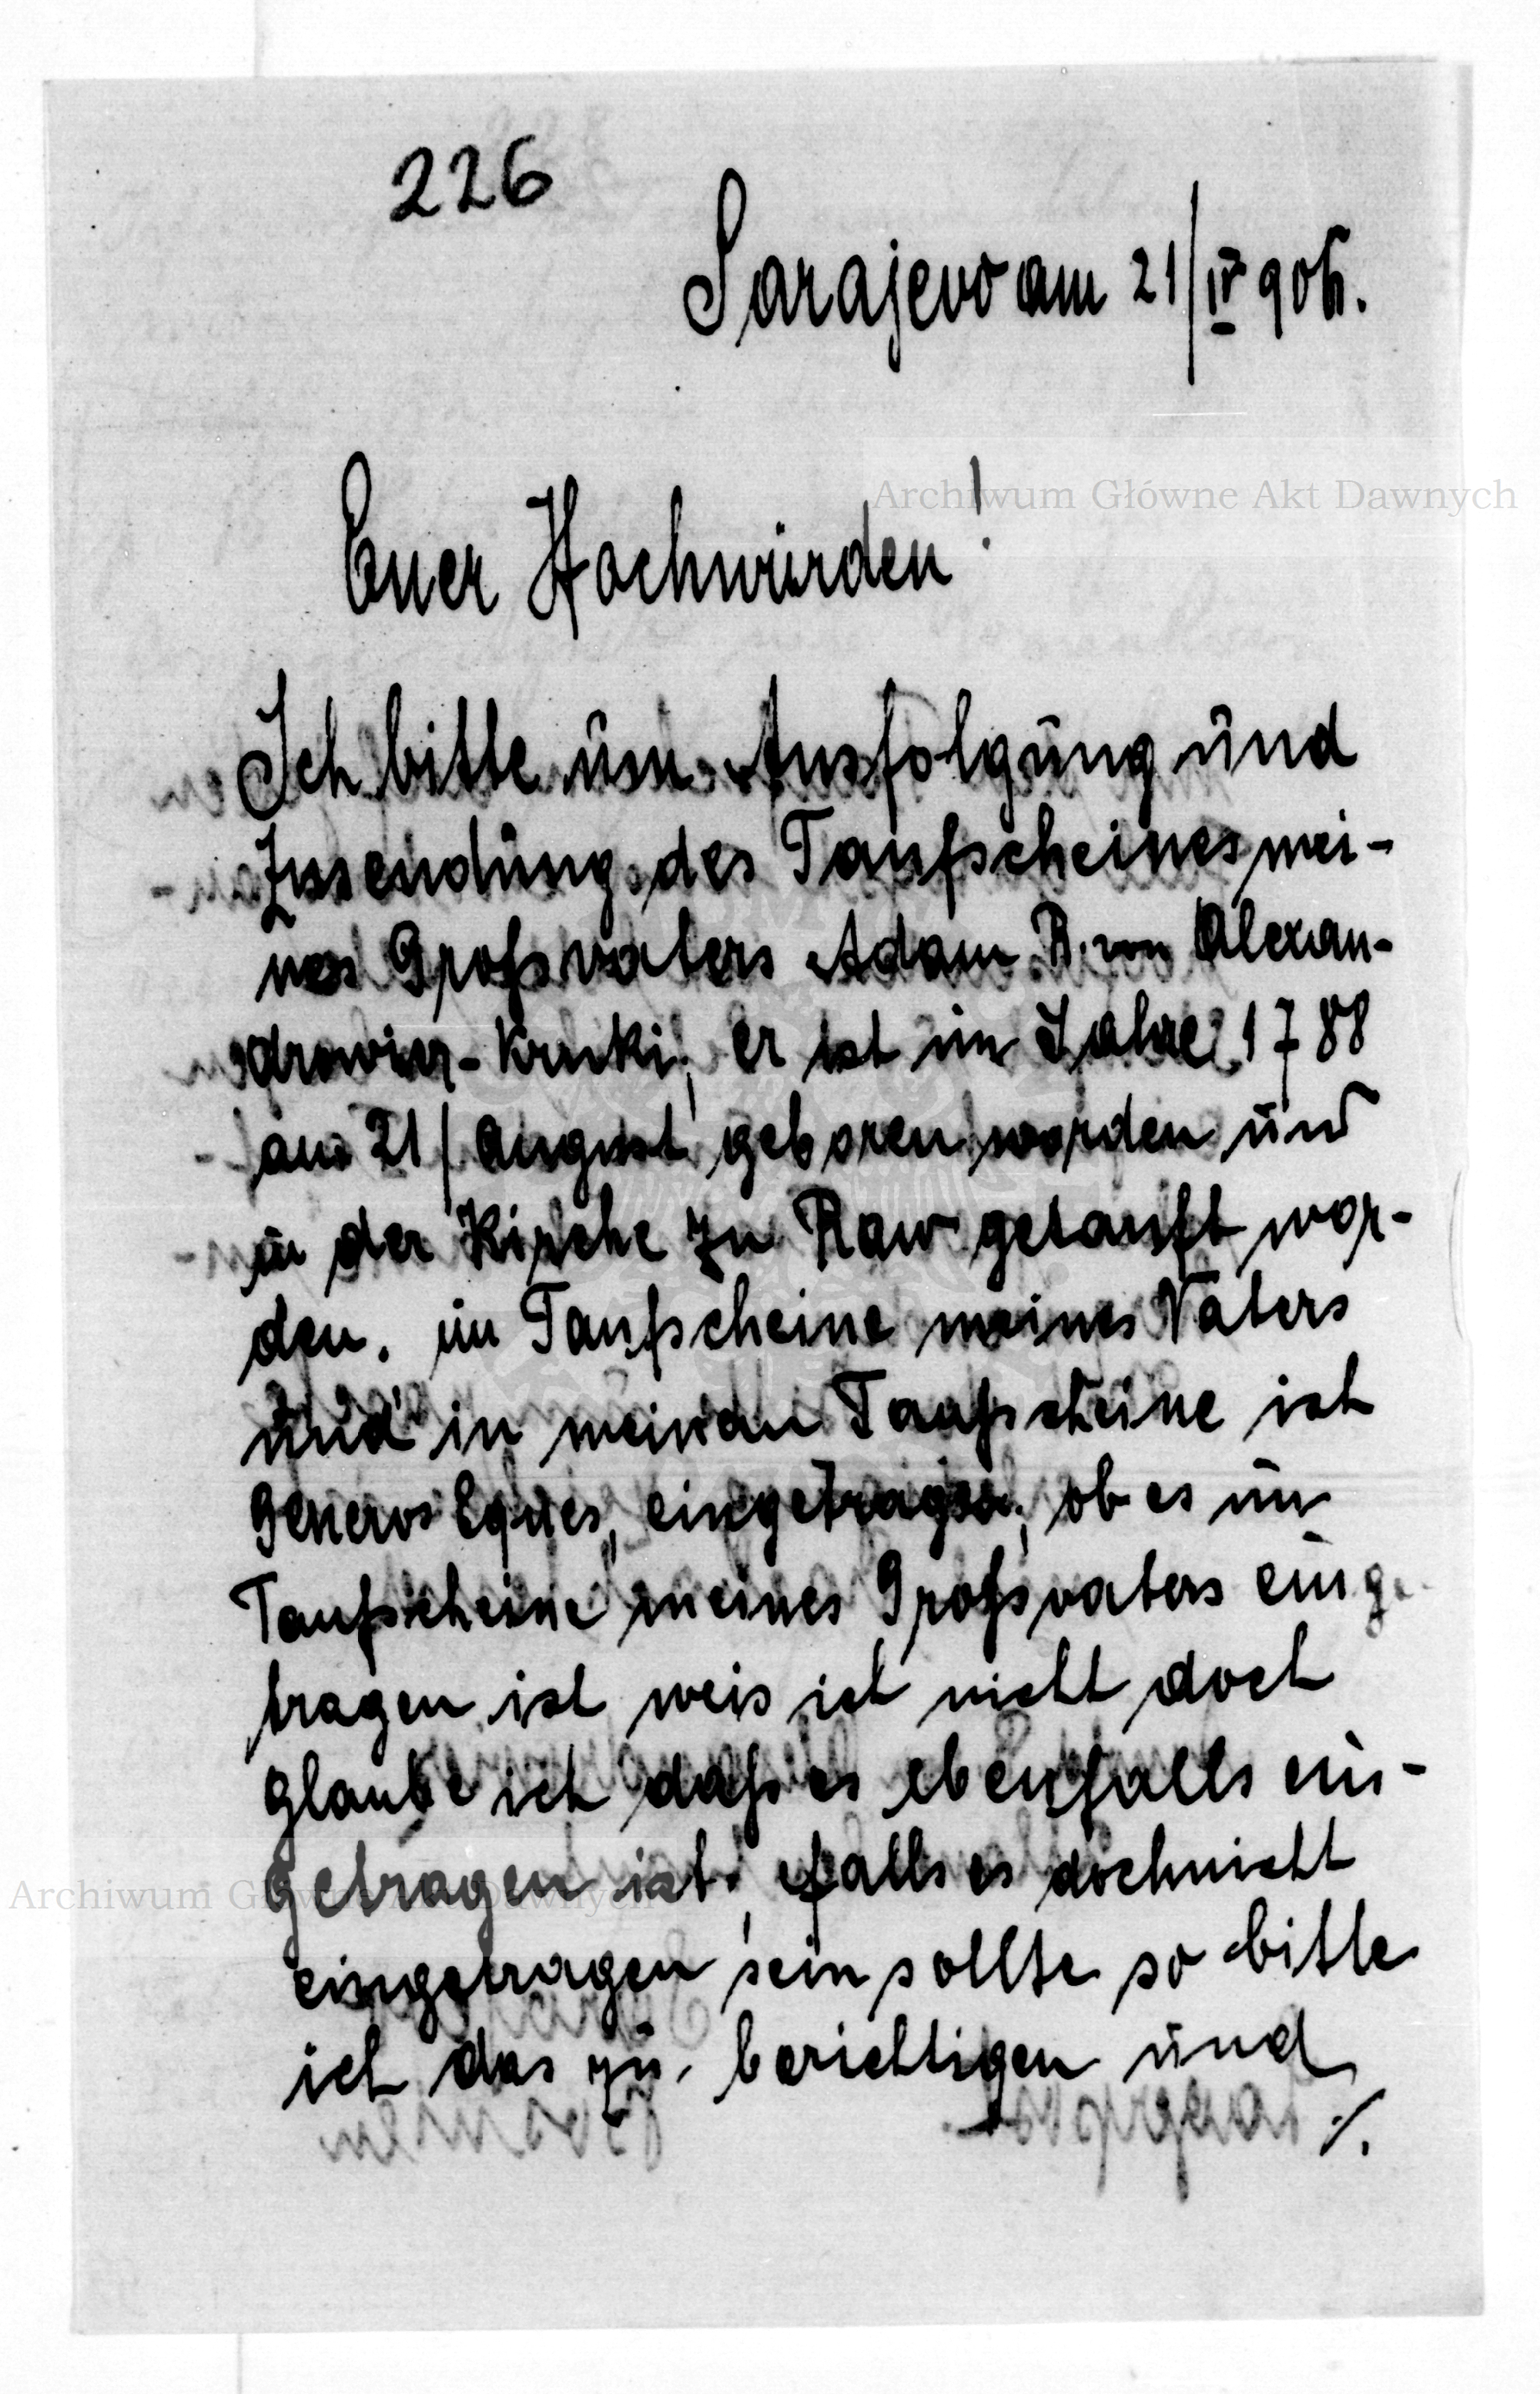 226
Sarajevo am 21/IV 906.
Archiwum Główne Akt Dawnych
Euer Hochwürden!
Ich bitte um Ausfolgung und
Zusendung des Taufscheines mei-
nes Großvaters Adam R. von Alexan-
drowicz-Kruki; er ist im Jahre 1788
am 21/August geboren worden und
in der Kirche zu Raw getauft wor-
den. im Taufscheine meines Vaters
und in meinem Taufscheine ist
Generos Eques, eingetragen, ob es im
Taufscheine meines Großvaters einge
tragen ist weis ich nicht doch
glaube ich daß es ebenfalls ein-
getragen ist, falls es doch nicht
Archiwum Główne Akt Dawnych
eingetragen sein sollte so bitte
ich das zu berichtigen und
./.